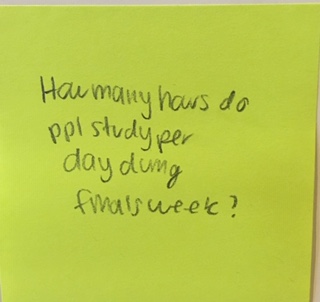 How many hours do
ppl study per
day during
finals week?